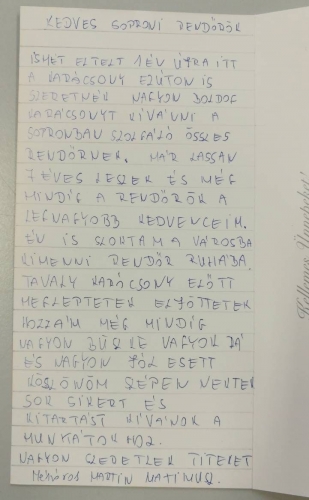 KEDVES SOPRONI RENDŐRÖK
ISMÉT ELTELT 1 ÉV ÚJRA ITT
A KARÁCSONY EZÚTON IS
SZERETNÉK NAGYON BOLDOG
KARÁCSONYT KÍVÁNNI A
SOPRONBAN SZOLGÁLÓ ÖSSZES
RENDŐRNEK. MÁR LASSAN
7 ÉVES LESZEK ÉS MÉG
MINDIG A RENDŐRÖK A
LEGNAGYOBB KEDVENCEIM.
ÉN IS SZOKTAM A VÁROSBA
KIMENNI RENDŐR RUHÁBA.
TAVALY KARÁCSONY ELŐTT
MEGLEPTETEK ELJÖTTETEK
HOZZÁM MÉG MINDIG
NAGYON BÜSZKE VAGYOK RÁ
ÉS NAGYON JÓL ESETT
KÖSZÖNÖM SZÉPEN NEKTEK
SOK SIKERT ÉS
KITARTÁST KÍVÁNOK A
MUNKÁTOKHOZ.
NAGYON SZERETLEK TITEKET
MARTIN
Kellemes Ünnepeket!